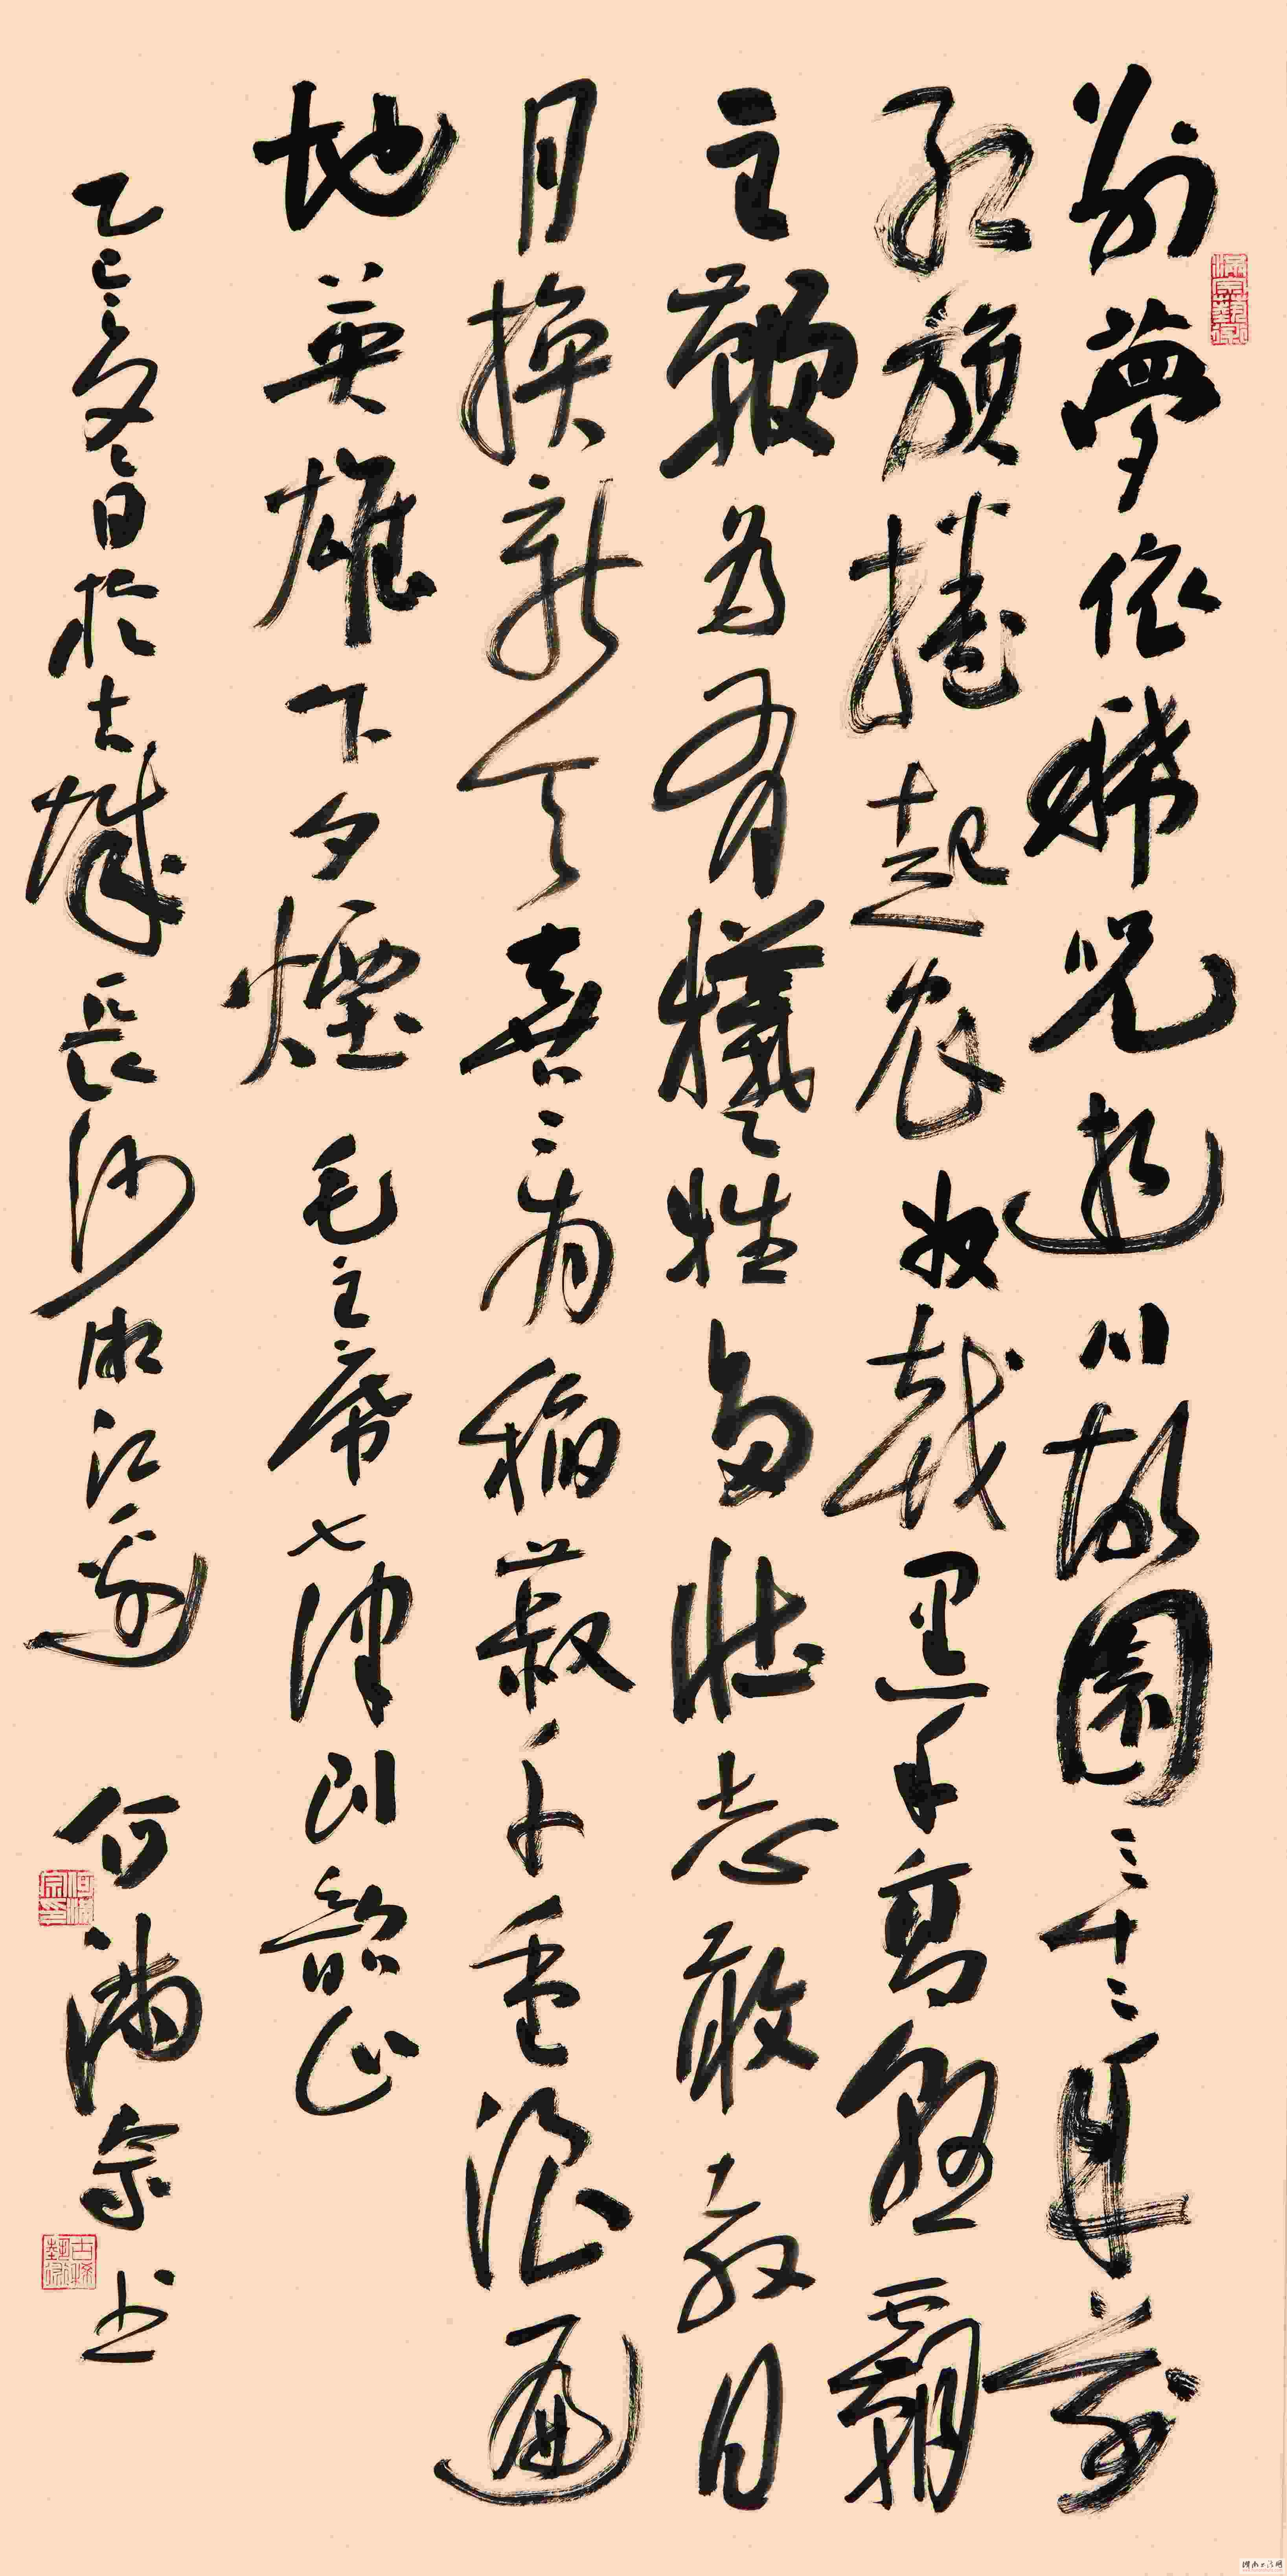 别夢依稀咒逝川故園三十二年前
红旗捲起农奴戟黑手高懸霸
主鞭为有犧牲多壮志敢教日
月换新天喜看稻菽千重浪遍
地英雄下夕煙 毛主席七律到韶山
乙巳冬日於古城長沙湘江邊 何满宗书